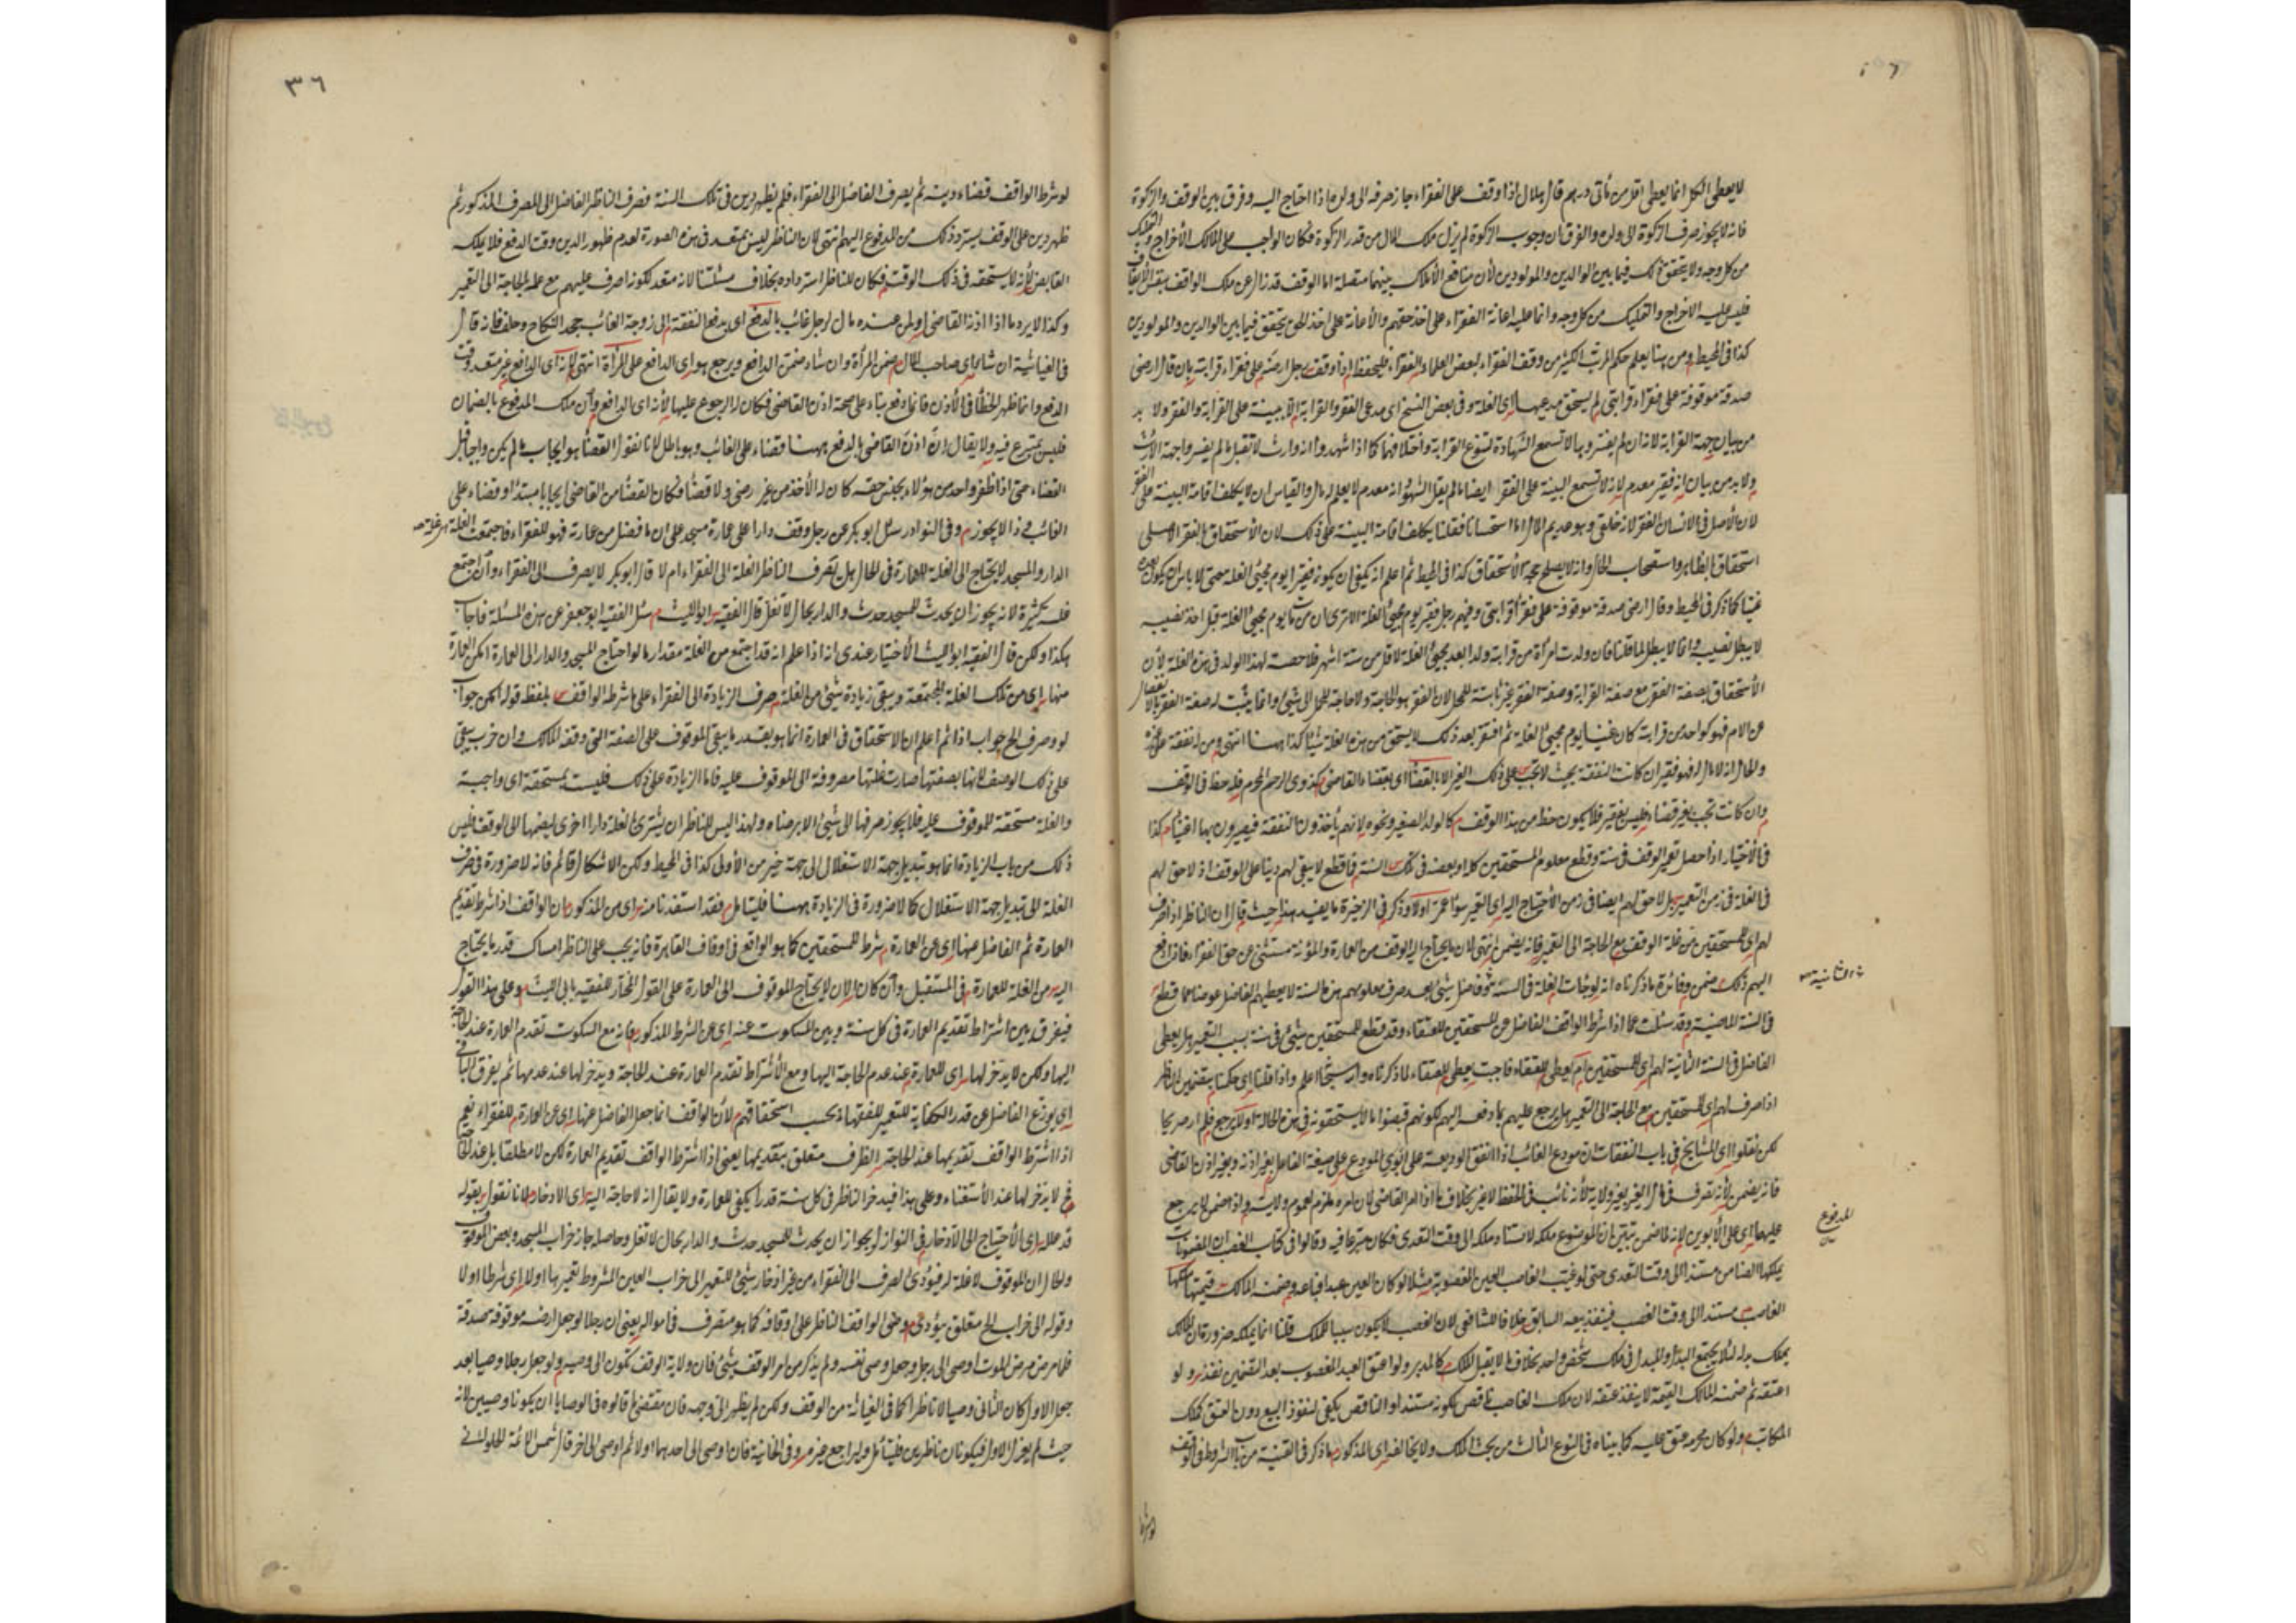 لا يعطى الكل انما يعطى اقل من مأتى درهم قال هلال اذا وقف على الفقراء جاز صرفه الى ولده اذا احتاج اليه وفرق بين الوقف والزكوة
فانه لا يجوز صرف الزكوة الى ولده والفرق ان وجوب الزكوة لم يزل ملك المال من قدر الزكوة فكان الواجب على المالك الأخراج والتمليك
من كل وجه ولا يتحقق ذلك فيما بين الوالدين والمولودين لأن منافع الأملاك بينهما متصلة اما الوقف قد زال عن ملك الواقف بنفس الأيقاف
فليس عليه الاخراج والتمليك من كل وجه وانما عليه اعانة الفقراء على اخذ حقهم والأعانة على اخذ الحق يتحقق فيما بين الوالدين والمولودين
كذا فى المحيط ومن هنا يعلم حكم المرتب الكثير من وقف الفقراء لبعض العلماء الفقراء فليحفظ اذا وقف رجل ارضه على فقراء قرابته بان قال ارضى
صدقة موقوفة على فقراء قرابتى لم يستحق مدعيها اى الغلة وفى بعض النسخ اى مدعى الفقر والقرابة الا ببينة على القرابة والفقر ولا بد
من بيان جهة القرابة لانه ان لم يفسروها لا تسمع الشهادة لتنوع القرابة واختلافها كما اذا شهدوا انه وارث لا تقبل ما لم يفسروا جهة الارث
ولا بد من بيان انه فقير معدم لانه لا تسمع البينة على الفقر ايضا ما لم يقل الشهود انه معدم لا يعلم له مال والقياس ان لا يكلف اقامة البينة على الفقر
لأن الأصل فى الانسان الفقر لانه خلق وهو عديم المال اما استحسانا فقلنا يكلف اقامة البينة على ذلك لان الأستحقاق بالفقر الاصلى
استحقاق بالظاهر واستصحاب الحال وانه لا يصلح حجة الأستحقاق كذا فى المحيط ثم اعلم انه يكفى ان يكون فقيرا يوم مجيئ الغلة حتى لا بأس ان يكون بعده
غنيا كما ذكر فى المحيط وقال ارضى صدقة موقوفة على فقراء قرابتى وفيهم رجل فقير يوم مجيئ الغلة الا ترى ان من مات يوم مجيئ الغلة قبل اخذ نصيبه
لا يبطل نصيبه وانما لا يبطل لما قلنا فان ولدت امرأة من قرابته ولدا بعد مجيئ الغلة لاقل من ستة اشهر فلا حصة لهذا الولد فى هذه الغلة لأن
الأستحقاق بصفة الفقر مع صفة القرابة وصفة الفقر غير ثابتة للحمل لان الفقر هو الحاجة ولا حاجة للحمل الى شيئ وانما يثبت له صفة الفقر بالانفصال
عن الام فهو كواحد من قرابته كان غنيا يوم مجيئ الغلة ثم افتقر بعد ذلك لا يستحق من هذه الغلة شيئا كذا ههنا انتهى ومن نفقته على غيره
والحال انه لا مال له فهو فقير ان كانت النفقة بحيث لا تجب على ذلك الغير الا بالقضاء اى بقضاء القاضى كذوى الرحم المحرم فله حظ فى الوقف
وان كانت تجب بغير قضاء فليس بفقير فلا يكون حظ من هذا الوقف كالولد الصغير ونحوه لانهم يأخذون النفقة فيصيرون بها اغنياء كذا
فى الأختيار اذا حصل تعمير الوقف فى سنة وقطع معلوم المستحقين كله او بعضه فى تلك السنة فما قطع لا يبقى لهم دينا على الوقف اذ لا حق لهم
فى الغلة فى زمن التعمير بل لا حق لهم ايضا فى زمن الأحتياج اليه اى التعمير سواء عمر اولا وذكر فى الذخيرة ما يفيد هذا حيث قال ان الناظر اذا صرف
لهم اى للمستحقين من غلة الوقف مع الحاجة الى التعمير فانه يضمن انتهى لان ما يحتاج اليه الوقف من العمارة والمؤنة مستثنى عن حق الفقراء فاذا دفع
اليهم ذلك ضمن وفائدة ما ذكرناه انه لو جاءت الغلة فى السنة الثانية وفضل شيئ بعد صرف معلومهم هذه السنة لا يعطيهم الفاضل عوضا عما قطع
فى السنة الماضية وقد سئلت عما اذا شرط الواقف الفاضل عن المستحقين للعتقاء وقد قطع للمستحقين شيئ فى سنة بسبب التعمير هل يعطى
الفاضل فى السنة الثانية لهم اى للمستحقين ام يعطى للعتقاء فاجبت يعطى للعتقاء لما ذكرناه والله سبحانه اعلم واذا قلنا اى حكمنا بتضمين الناظر
اذا صرف لهم اى للمستحقين مع الحاجة الى التعمير هل يرجع عليهم بما دفعه اليهم لكونهم قبضوا ما لا يستحقونه فى هذه الحالة او لا يرجع فلم اره صريحا
لكن نقلوا اى المشايخ فى باب النفقات ان مودع الغائب اذا انفق الوديعة على ابوى المودع على صيغة الفاعل بغير اذنه وبغير اذن القاضى
فانه يضمن لأنه تصرف فى مال الغير بغير ولاية لأنه نائب فى الحفظ لا غير بخلاف ما اذا امر القاضى لان امره ملزم لعموم ولايته واذا ضمن لا يرجع
عليهما اى على الأبوين لانه لما ضمن تبين ان المدفوع ملكه لاستناد ملكه الى وقت التعدى فكان متبرعا فيه وقالوا فى كتاب الغصب ان المضمونات
يملكها الضامن مستندا الى وقت التعدى حتى لو غيب الغاصب العين المغصوبة مثلا لو كان العين عبدا فباعه وضمنه المالك قيمتها ملكها
الغاصب مستندا الى وقت الغصب فينفذ بيعه السابق خلافا للشافعى لان الغصب لا يكون سببا للملك قلنا انما يملكه ضرورة ان المالك
يملك بدله لئلا يجتمع البدل والمبدل فى ملك شخص واحد بخلاف ما لا يقبل الملك كالمدبر ولو اعتق العبد المغصوب بعد التضمين نفذ ولو
اعتقه ثم ضمنه المالك القيمة لا ينفذ عتقه لان ملك الغاصب ناقص لكونه مستندا والناقص يكفى لنفوذ البيع دون العتق كملك
المكاتب ولو كان محرمه عتق عليه كما بيناه فى النوع الثالث من بحث الملك ولا يخالفه اى المذكور ما ذكر فى القنية من باب الشروط فى الوقف
المدفوع
لو شرط
٣٦
لو شرط الواقف قضاء دينه ثم يصرف الفاضل الى الفقراء فلم يظهر دين فى تلك السنة فصرف الناظر الفاضل الى المصرف المذكور ثم
ظهر دين على الوقف يسترد ذلك من المدفوع اليهم انتهى لان الناظر ليس بمتعد فى هذه الصورة لعدم ظهور الدين وقت الدفع فلا يملكه
القابض لأنه لا يستحقه فى ذلك الوقت فكان للناظر استرداده بخلاف مسئلتنا لانه متعد لكونه صرف عليهم مع علمه بالحاجة الى التعمير
وكذا لا يرد ما اذا اذن القاضى لمن عنده مال لرجل غائب بالدفع اى بدفع النفقة الى زوجة الغائب جحد النكاح وحلف فانه قال
فى الغياثية ان شاء اى صاحب المال ضمن المرأة وان شاء ضمن الدافع ويرجع هو اى الدافع على المرأة انتهى لانه اى الدافع غير متعد وقت
الدفع وانما ظهر الخطأ فى الأذن فانما دفع بناء على صحة اذن القاضى فكان له الرجوع عليها لأنه اى الدافع وان ملك المدفوع بالضمان
فليس بمتبرع فيه ولا يقال ان اذن القاضى بالدفع ههنا قضاء على الغائب وهو باطل لانا نقول القضاء هو ايجاب ما لم يكن واجبا قبل
القضاء حتى اذا ظفر واحد من هؤلاء بجنس حقه كان له الأخذ من غير رضى ولا قضاء فكان القضاء من القاضى ايجابا مبتدأ وقضاء على
الغائب وذا لا يجوز وفى النوادر سئل ابو بكر عن رجل وقف دارا على عمارة مسجد على ان ما فضل من عمارته فهو للفقراء فاجتمعت الغلة
الدار والمسجد لا يحتاج الى الغلة للعمارة فى الحال هل تصرف الناظر الغلة الى الفقراء ام لا قال ابو بكر لا يصرف الى الفقراء وان اجتمع
غلة كثيرة لانه يجوز ان يحدث للمسجد حدث والدار بحال لا تغل قال الفقيه ابو الليث سئل الفقيه ابو جعفر عن هذه المسئلة فاجاب
هكذا ولكن قال الفقيه ابو الليث الأختيار عندى انه اذا علم انه قد اجتمع من الغلة مقدار ما لو احتاج المسجد والدار الى العمارة امكن العمارة
منها اى من تلك الغلة المجتمعة ويبقى زيادة شيئ من الغلة صرف الزيادة الى الفقراء على ما شرطه الواقف بلفظ قوله امكن جواب
لو وصرف الخ جواب اذا ثم اعلم ان الاستحقاق فى العمارة انما هو بقدر ما يبقى الموقوف على الصفة التى وقفه المالك وان خرب يبقى
على ذلك الوصف لانها بصفتها صارت غلتها مصروفة الى الموقوف عليه فاما الزيادة على ذلك فليست بمستحقة اى واجبة
والغلة مستحقة للموقوف عليه فلا يجوز صرفها الى شيئ الا برضاه ولهذا ليس للناظر ان يشترى بالغلة دارا اخرى ليضمها الى الوقف فليس
ذلك من باب الزيادة انما هو تبديل جهة الاستغلال الى جهة خير من الأولى كذا فى المحيط ولكن الاشكال قائم فانه لا ضرورة فى صرف
الغلة الى تبديل جهة الاستغلال كما لا ضرورة فى الزيادة ههنا فليتأمل فقد استفدنا منه اى من المذكور ان الواقف اذا شرط تقديم
العمارة ثم الفاضل عنها اى عن العمارة شرط للمستحقين كما هو الواقع فى اوقاف القاهرة فانه يجب على الناظر امساك قدر ما يحتاج
اليه من الغلة للعمارة فى المستقبل وان كان الان لا يحتاج الموقوف الى العمارة على القول المختار للفقيه ابى الليث وعلى هذا القول
فيفرق بين اشتراط تقديم العمارة فى كل سنة وبين السكوت عنه اى عن الشرط المذكور فانه مع السكوت تقدم العمارة عند الحاجة
اليها ولكن لا يدخر لها اى للعمارة عند عدم الحاجة اليها ومع الأشتراط تقدم العمارة عند الحاجة ويدخر لها عند عدمها ثم يفرق الباقى
اى يوزع الفاضل عن قدر الكفاية للتعمير للفقهاء بحسب استحقاقهم لأن الواقف انما جعل الفاضل عنها اى عن العمارة للفقراء نعم
اذا اشترط الواقف تقديمها عند الحاجة الظرف متعلق بتقديمها يعنى اذا اشترط الواقف تقديم العمارة لكن لا مطلقا بل عند الحاجة
فح لا يدخر لها عند الأستغناء وعلى هذا فيدخر الناظر فى كل سنة قدرا يكفى للعمارة ولا يقال انه لا حاجة اليه اى الادخار لانا نقول بقوله
قد علله اى الأحتياج الى الأدخار فى النوازل بجواز ان يحدث للمسجد حدث والدار بحال لا تغل وحاصله جاز خراب المسجد وبعض الموقوف
والحال ان الموقوف لا غلة له فيؤدى الصرف الى الفقراء من غير ادخار شيئ للتعمير الى خراب العين المشروط تعميرها اولا اى شرطا اولا
وقوله الى خراب الخ متعلق بيؤدى وصى الواقف الناظر على اوقافه كما هو متصرف فى امواله يعنى ان رجلا لو جعل ارضه موقوفة صدقة
فلما مرض مرض الموت اوصى الى رجل وجعل وصى نفسه ولم يذكر من امر الوقف بشيئ فان ولاية الوقف تكون الى وصيه ولو جعل رجلا وصيا بعد
جعل الاول كان الثانى وصيا لا ناظرا كما فى الغياثة من الوقف ولكن لم يظهر لى وجهه فان مقتضى ما قالوه فى الوصايا ان يكونا وصيين لانه
حيث لم يعزل الاول فيكونان ناظرين فليتأمل وليراجع غيره وفى الخانية فان اوصى الى احدهما اولا ثم اوصى الى اخر قال شمس الائمة الحلوانى